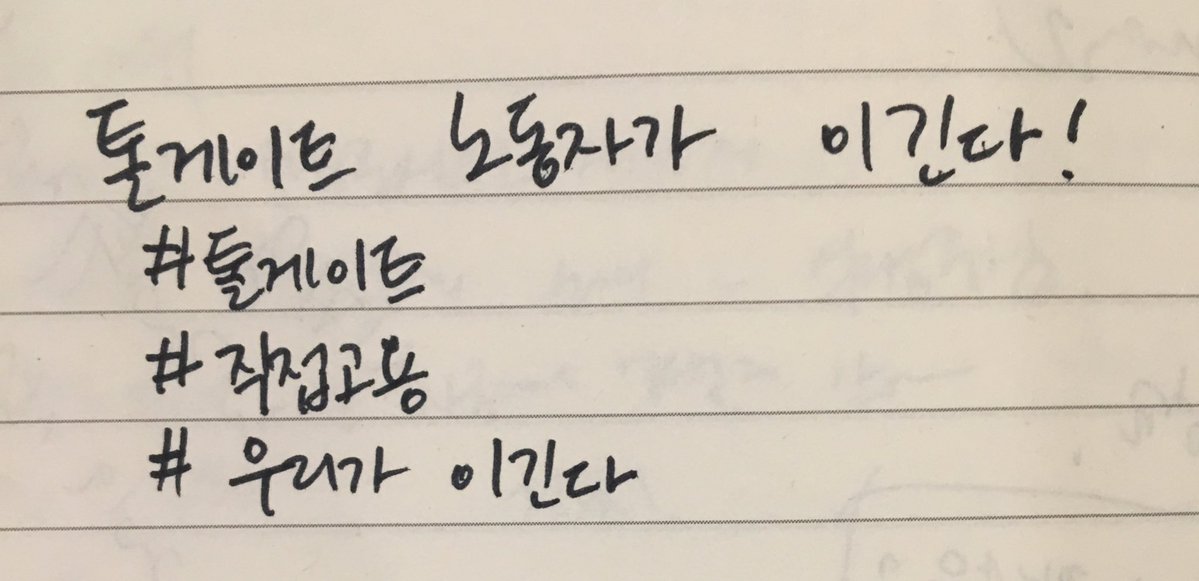 톨게이트 노동자가 이긴다!
#톨게이트
#직접고용
# 우리가 이긴다